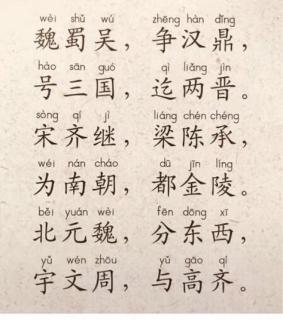 wèi shǔ wú zhēng hàn dǐng
魏蜀吴，争汉鼎，
hào sān guó qì liǎng jìn
号三国，迄两晋。
sòng qí jì liáng chén chéng
宋齐继，梁陈承，
wéi nán cháo dū jīn líng
为南朝，都金陵。
běi yuán wèi fēn dōng xī
北元魏，分东西，
yǔ wén zhōu yǔ gāo qí
宇文周，与高齐。